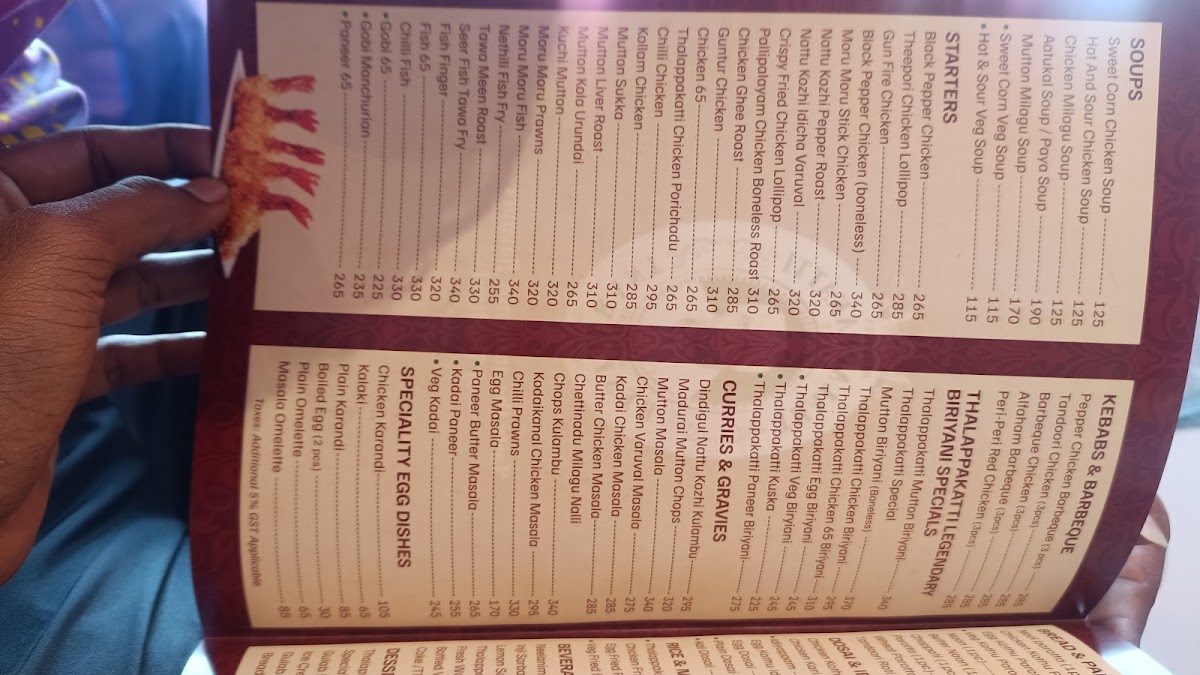 SOUPS
Sweet Corn Chicken Soup 125
Hot And Sour Chicken Soup 125
Chicken Milagu Soup 125
Aatukal Soup / Paya Soup 190
Mutton Milagu Soup 170
• Sweet Corn Veg Soup 115
• Hot & Sour Veg Soup 115
STARTERS
Black Pepper Chicken 265
Theepori Chicken Lollipop 285
Gun Fire Chicken 265
Black Pepper Chicken (boneless) 340
Moru Moru Stick Chicken 265
Nattu Kozhi Pepper Roast 320
Nattu Kozhi Idicha Varuval 320
Crispy Fried Chicken Lollipop 265
Pallipalayam Chicken Boneless Roast 310
Chicken Ghee Roast 285
Guntur Chicken 310
Chicken 65 265
Thalappakatti Chicken Porichadu 265
Chilli Chicken 295
Kollam Chicken 285
Mutton Sukka 310
Mutton Liver Roast 310
Mutton Kola Urundai 265
Kuchi Mutton 320
Moru Moru Prawns 320
Moru Moru Fish 340
Nethili Fish Fry 255
Tawa Meen Roast 330
Seer Fish Tawa Fry 340
Fish Finger 320
Fish 65 330
Chilli Fish 330
• Gobi 65 225
• Gobi Manchurian 235
• Paneer 65 265
KEBABS & BARBEQUE
Pepper Chicken Barbeque 285
Tandoori Chicken Barbeque (3 pcs) 285
Barbeque Chicken (3pcs) 285
Alfaham Barbeque (3pcs) 285
Peri-Peri Red Chicken (3pcs) 285
THALAPPAKATTI LEGENDARY
BIRIYANI SPECIALS
Thalappakatti Mutton Biriyani 340
Thalappakatti Special
Mutton Biriyani (Boneless) 370
Thalappakatti Chicken Biriyani 295
Thalappakatti Chicken 65 Biriyani 310
Thalappakatti Egg Biriyani 245
• Thalappakatti Veg Biryiani 245
• Thalappakatti Kuska 225
• Thalappakatti Paneer Biriyani 275
CURRIES & GRAVIES
Dindigul Nattu Kozhi Kulambu 295
Madurai Mutton Chops 320
Mutton Masala 340
Chicken Varuval Masala 275
Kadai Chicken Masala 285
Butter Chicken Masala 285
Chettinadu Milagu Nalli
Chops Kulambu 340
Kodaikanal Chicken Masala 295
Chilli Prawns 330
Egg Masala 170
• Paneer Butter Masala 265
• Kadai Paneer 255
• Veg Kadai 245
SPECIALITY EGG DISHES
Chicken Karandi 105
Kalaki 65
Plain Karandi 85
Boiled Egg (2 pcs) 30
Plain Omelette 65
Masala Omelette 85
Taxes: Additional 5% GST Applicable